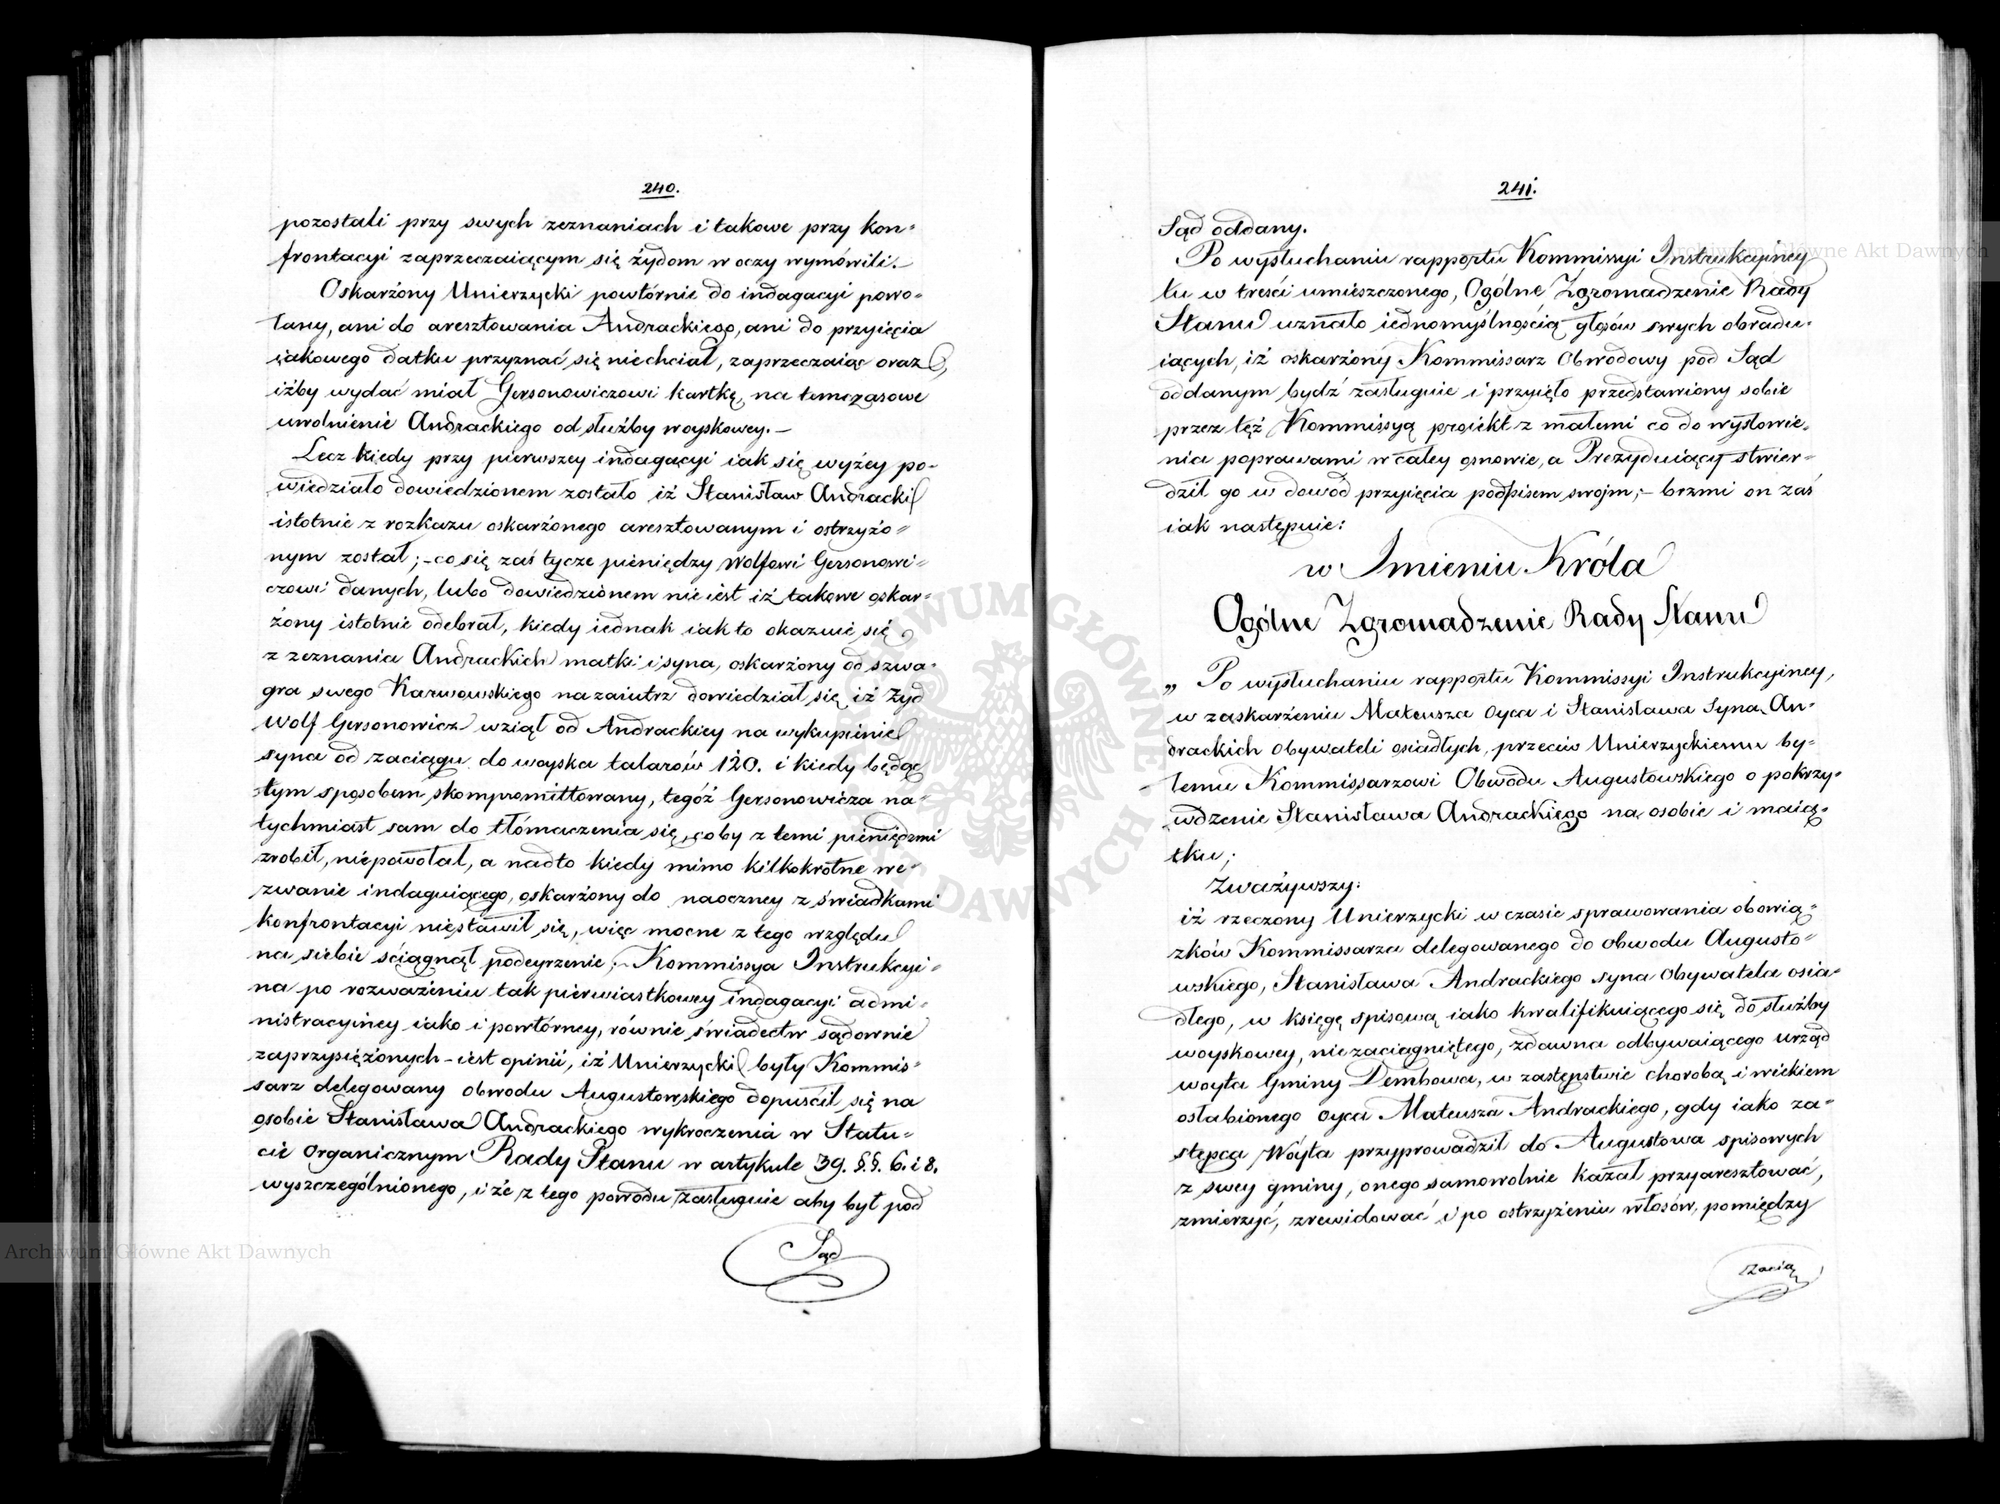 240.
pozostali przy swych zeznaniach i takowe przy kon-
frontacyi zaprzeczaiącym się żydom w oczy wymówili.-
Oskarżony Unierzycki powtórnie do indagacyi powo-
łany, ani do aresztowania Andrackiego, ani do przyięcia
iakowego datku przyznać się niechciał, zaprzeczaiąc oraz,
iżby wydać miał Gersonowiczowi kartkę, na tymczasowe
uwolnienie Andrackiego od służby woyskowey.-
Lecz kiedy przy pierwszey indagacyi iak się wyżey po-
wiedziało dowiedzionem zostało iż Stanisław Andracki
istotnie z rozkazu oskarżonego aresztowanym i ostrzyżo-
nym został; - co się zaś tycze pieniędzy Wolfowi Gersonowi-
czowi danych, lubo dowiedzionem nie iest iż takowe oskar-
żony istotnie odebrał, kiedy iednak iak to okazuie się
z zeznania Andrackich matki i syna, oskarżony od szwa-
gra swego Karwowskiego nazaiutrz dowiedział się, iż Żyd
Wolf Gersonowicz wziął od Andrackiey na wykupienie
syna od zaciągu do woyska talarów 120. i kiedy będąc
tym sposobem skompromittowany, tegóż Gersonowicza na-
tychmiast sam do tłómaczenia się, coby z temi pieniędzmi
zrobił, niepowołał, a nadto kiedy mimo kilkokrotne we-
zwanie indaguiącego, oskarżony do naoczney z świadkami
konfrontacyi niestawił się, więc mocne z tego względu
na siebie ściągnął podeyrzenie; - Kommissya Instrukcyi-
na po rozważeniu tak pierwiastkowey indagacyi admi-
nistracyiney iako i powtórney, równie świadectw sądownie
zaprzysiężonych - iest opinii, iż Unierzycki były Kommis-
sarz delegowany obwodu Augustowskiego dopuścił się na
osobie Stanisława Andrackiego wykroczenia w Statu-
cie Organicznym Rady Stanu w artykule 39. §.§. 6. i 8.
wyszczególnionego, i że z tego powodu zasługuie aby był pod
Sąd
241.
Sąd oddany.
Po wysłuchaniu rapportu Kommissyi Instrukcyiney
tu w treści umieszczonego, Ogólne Zgromadzenie Rady
Stanu uznało iednomyślnością głosów swych obradu-
iących, iż oskarżony Kommissarz Obwodowy pod Sąd
oddanym bydź zasługuie i przyięło przedstawiony sobie
przez też Kommissyą proiekt z małemi co do wysłowie-
nia poprawami w całey osnowie, a Prezyduiący stwier-
dził go w dowód przyięcia podpisem swoim; - brzmi on zaś
iak następuie:
w Imieniu Króla
Ogólne Zgromadzenie Rady Stanu
„ Po wysłuchaniu rapportu Kommissyi Instrukcyiney,
w zaskarżeniu Mateusza Oyca i Stanisława Syna An-
drackich Obywateli osiadłych, przeciw Unierzyckiemu by-
łemu Kommissarzowi Obwodu Augustowskiego o pokrzy-
wdzenie Stanisława Andrackiego na osobie i maią-
tku;
Zważywszy:
iż rzeczony Unierzycki w czasie sprawowania obowią-
zków Kommissarza delegowanego do obwodu Augusto-
wskiego, Stanisława Andrackiego syna Obywatela osia-
dłego, w księgę spisową iako kwalifikuiącego się do służby
woyskowey, niezaciągniętego, zdawna odbywaiącego urząd
woyta Gminy Dembowa, w zastępstwie chorobą i wiekiem
osłabionego oyca Mateusza Andrackiego, gdy iako za-
stępca Wóyta przyprowadził do Augustowa spisowych
z swey gminy, onego samowolnie kazał przyaresztować,
zmierzyć, zrewidować i po ostrzyżeniu włosów, pomiędzy
zacią
Archiwum Główne Akt Dawnych
Archiwum Główne Akt Dawnych
ARCHIWUM GŁÓWNE AKT DAWNYCH